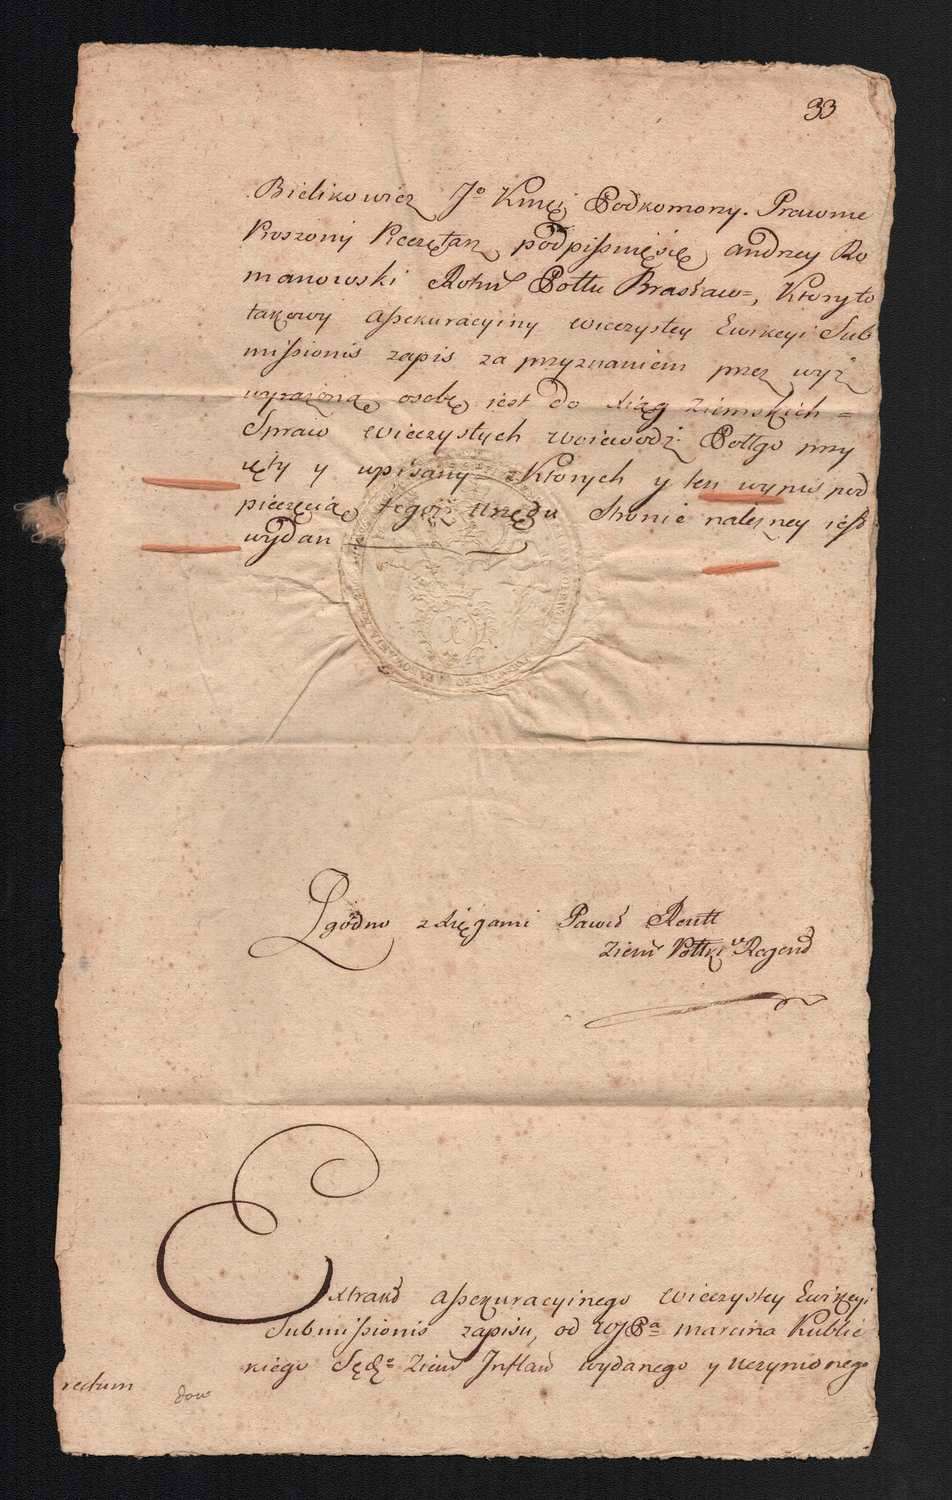 33
Bielikowicz Jo Kmci Podkomorzy. Prawnie
Proszony Pieczętarz podpissuię się andrzey Ro
manowski Rotm Pottu Brasław=, Który to
takowy assekuracyiny wieczystey Ewikcyi Sub
missionis zapis za przyznaniem przez wyż
wyrażoną osobę iest do xiąg ziemskich=
Spraw wieczystych woiewodz. Połłgo przy
ięty y wpisany z Których y ten wypis pod
pieczęcią tegoż urzędu stronie należney iest
wydan
Zgodno z xięgami Paweł Reutt
Ziem Połłki Regend
Extrakt assekuracyinego wieczystey Ewikcyi
Submissionis zapisu, od WJPa marcina Kublic
kiego Sędz Ziem Inflan wydanego y uczynionego
rectum